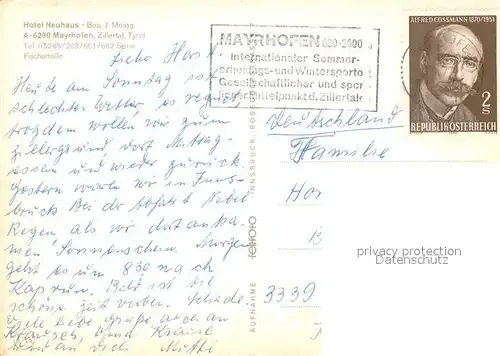 Hotel Neuhaus - Bes. J. Moigg
A-6290 Mayrhofen, Zillertal, Tyrol
Tel. (0 52 85) 203/661/662 Serie
Fischerhalle
MAYRHOFEN 630-2000 m
Internationaler Sommer-
erholungs- und Wintersportort
Gesellschaftlicher und spor
licher Mittelpunkt d. Zillertales
ALFRED COSSMANN 1870/1951
2 S
REPUBLIK ÖSTERREICH
Lieber Horst
Heute am Sonntag so
schlechtes Wetter es regnet
trotzdem wollen wir zum
Zillergrund dort Mittag
essen und wieder zurück.
Gestern waren wir in Inns-
bruck Bei der Abfahrt Nebel
Regen als wir dort anka-
men Sonnenschein. Morgen
geht es um 8 30 nach
Kaprun. Bald ist die
schöne Zeit vorbei. Schade.
Viele liebe Grüße auch an
und
an dich Mutti
Deutschland
Familie
Hor
3339
INNSBRUCK
AUFNAHME
privacy protection
Datenschutz